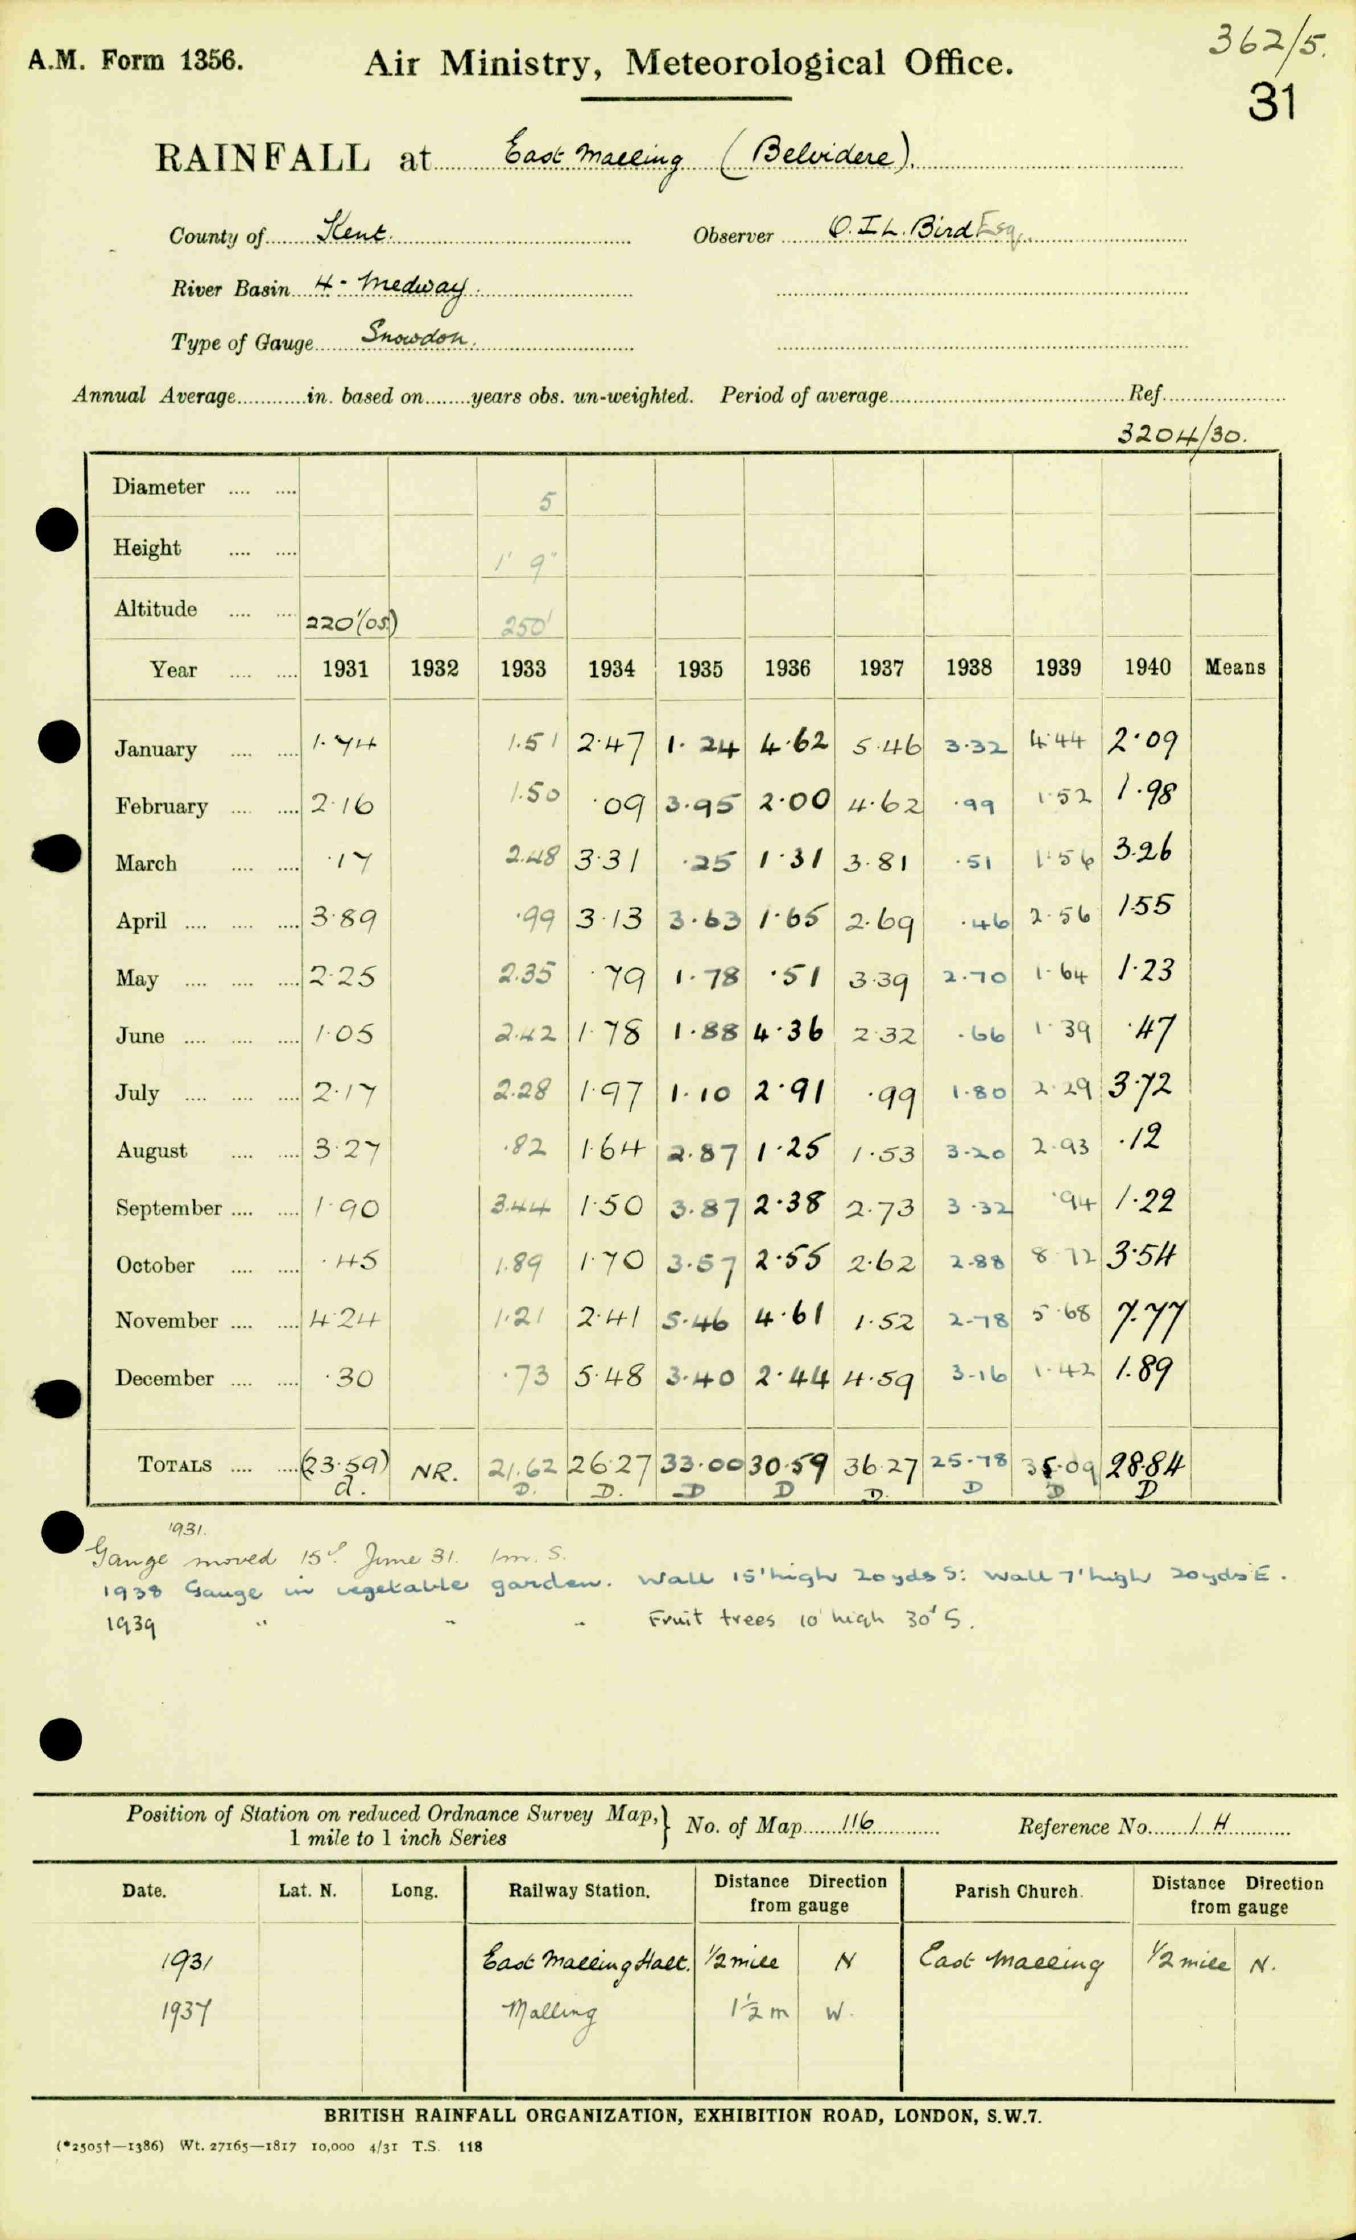 362/5.
A.M. Form 1356. Air Ministry, Meteorological Office.
31
RAINFALL at East Malling (Belvidere).
County of Kent. Observer O.I.L. Bird Esq.
River Basin 4 - Medway.
Type of Gauge Snowdon.
Annual Average in. based on years obs. un-weighted. Period of average Ref.
3204/30.
Diameter 5
Height 1' 9"
Altitude 220'(OS) 250'
Year 1931 1932 1933 1934 1935 1936 1937 1938 1939 1940 Means
January 1.74 1.51 2.47 1.24 4.62 5.46 3.32 4.44 2.09
February 2.16 1.50 .09 3.95 2.00 4.62 .99 1.52 1.98
March .17 2.48 3.31 .25 1.31 3.81 .51 1.56 3.26
April 3.89 .99 3.13 3.63 1.65 2.69 .46 2.56 1.55
May 2.25 2.35 .79 1.78 .51 3.39 2.70 1.64 1.23
June 1.05 2.42 1.78 1.88 4.36 2.32 .66 1.39 .47
July 2.17 2.28 1.97 1.10 2.91 .99 1.80 2.29 3.72
August 3.27 .82 1.64 2.87 1.25 1.53 3.20 2.93 .12
September 1.90 3.44 1.50 3.87 2.38 2.73 3.32 .94 1.22
October .45 1.89 1.70 3.57 2.55 2.62 2.88 8.72 3.54
November 4.24 1.21 2.41 5.46 4.61 1.52 2.78 5.68 7.77
December .30 .73 5.48 3.40 2.44 4.59 3.16 1.42 1.89
TOTALS (23.59) NR. 21.62 26.27 33.00 30.59 36.27 25.78 35.09 28.84
d. D. D. D D D D D D
1931.
Gauge moved 15th June 31. 1m. S.
1938 Gauge in vegetable garden. Wall 15' high 20yds S: Wall 7' high 20yds E.
1939 " " " Fruit trees 10' high 30' S.
Position of Station on reduced Ordnance Survey Map, } No. of Map 116 Reference No. 1 H
1 mile to 1 inch Series
Date. Lat. N. Long. Railway Station. Distance Direction from gauge Parish Church. Distance Direction from gauge
1931 East Malling Halt. 1/2 mile N East Malling 1/2 mile N.
1937 Malling 1 1/2 m W.
BRITISH RAINFALL ORGANIZATION, EXHIBITION ROAD, LONDON, S.W.7.
(*2505†—1386) Wt. 27165—1817 10,000 4/31 T.S. 118